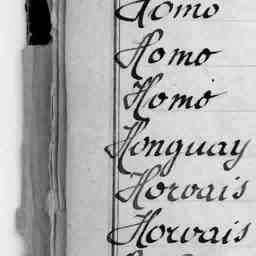 Homo
Homo
Homo
Honguay
Horvais
Horvais